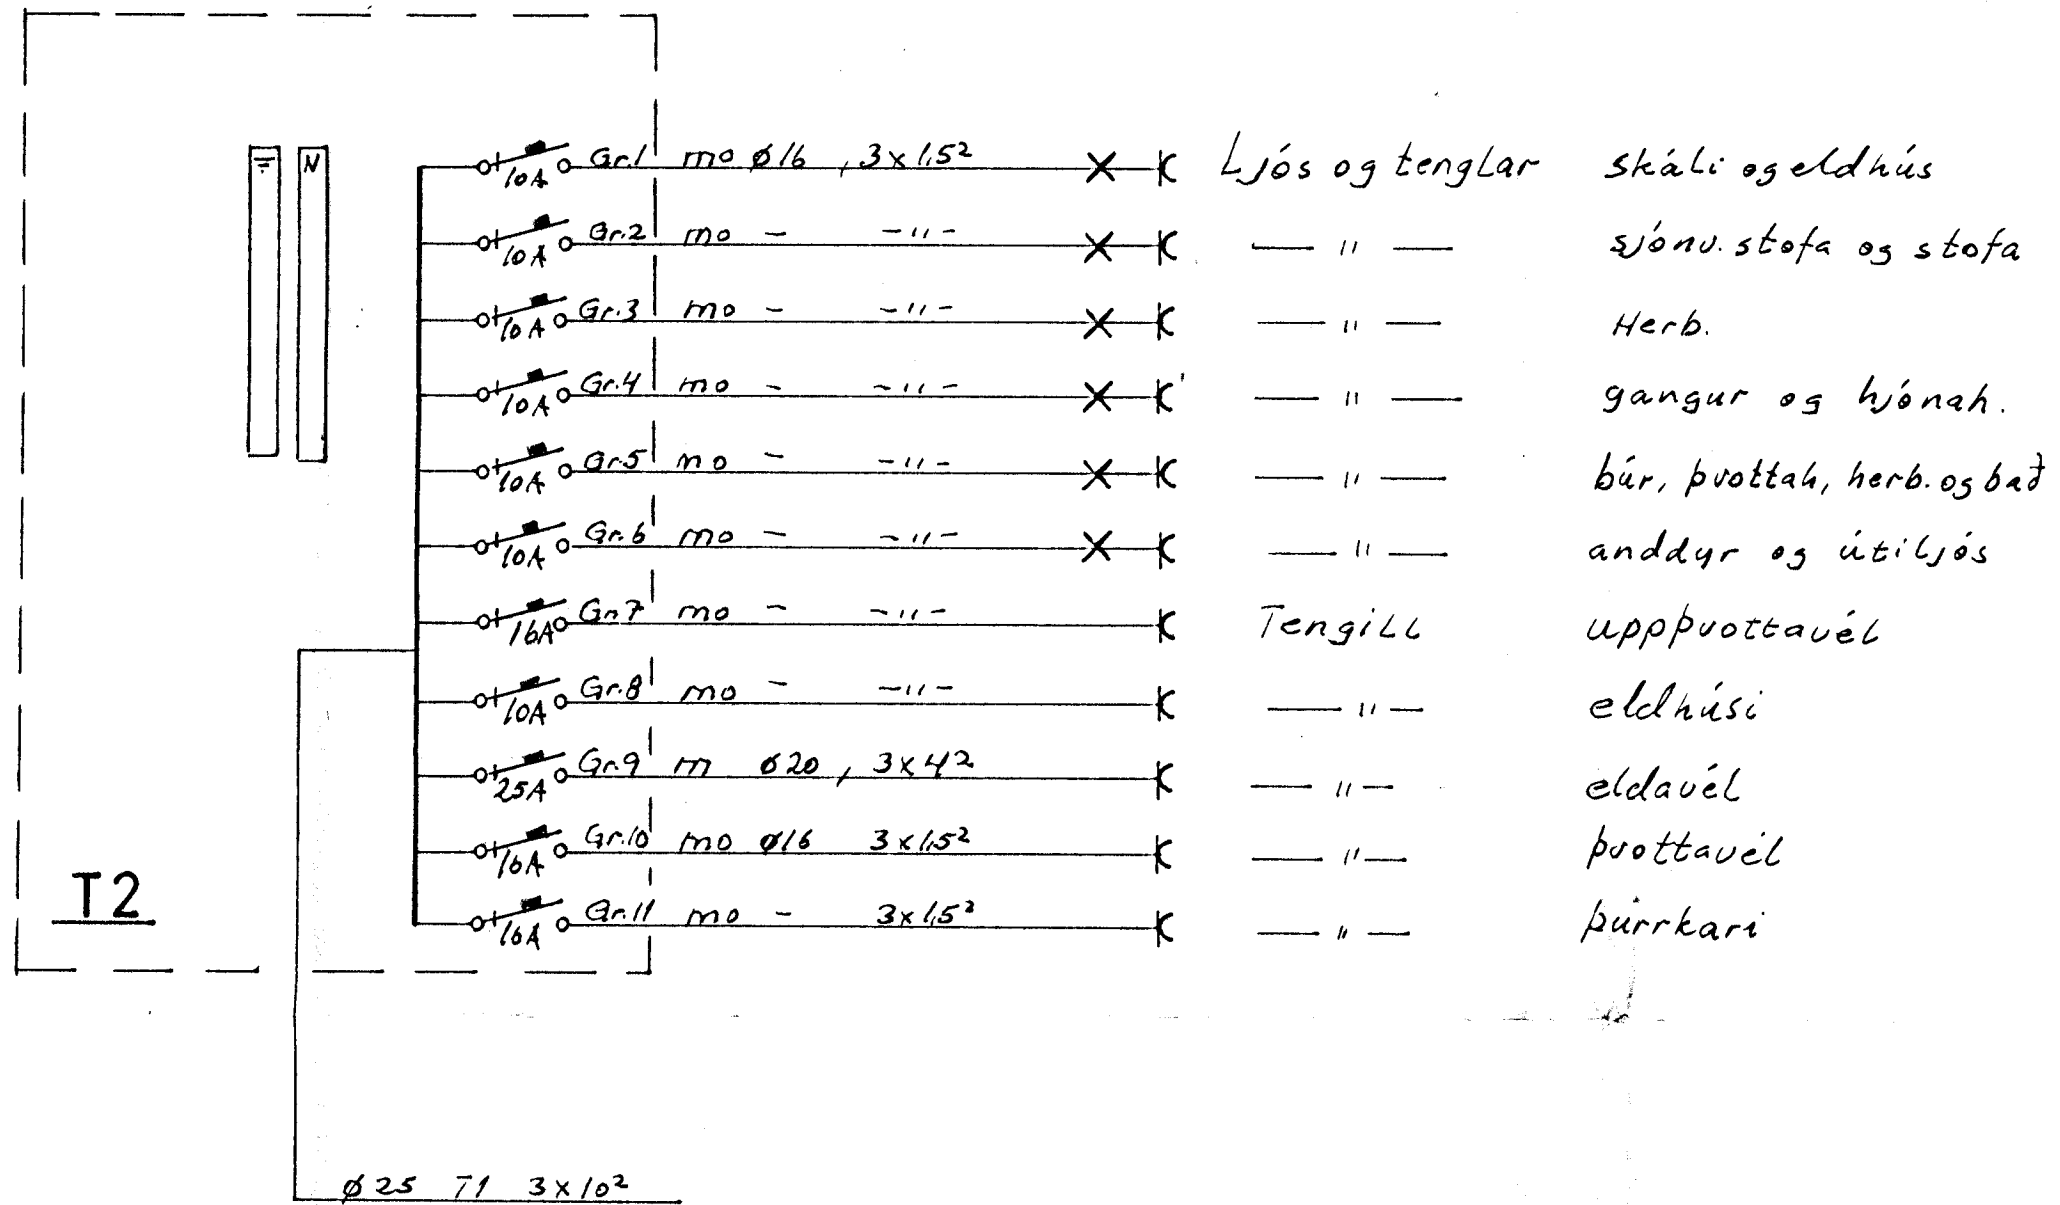 N
Gr.1 mo ø16 , 3x1,5² Ljós og tenglar skáli og eldhús
10A
Gr.2 mo - -"- — " — sjónv. stofa og stofa
10A
Gr.3 mo - -"- — " — Herb.
10A
Gr.4 mo - -"- — " — gangur og hjónah.
10A
Gr.5 mo - -"- — " — búr, þvottah, herb. og bað
10A
Gr.6 mo - -"- — " — anddyr og útiljós
10A
Gr.7 mo - -"- Tengill uppþvottavél
16A
Gr.8 mo - -"- — " — eldhúsi
10A
Gr.9 m ø20 , 3x4² — " — eldavél
25A
Gr.10 mo ø16 3x1,5² — " — þvottavél
16A
Gr.11 mo - 3x1,5² — " — þurrkari
16A
T2
ø25 T1 3x10²